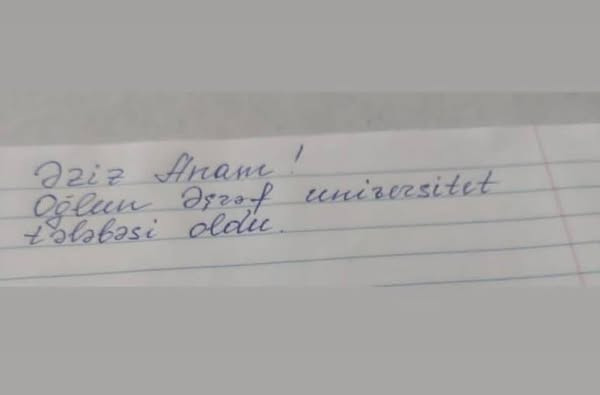 Əziz Anam!
Oğlun Əşrəf universitet
tələbəsi oldu.